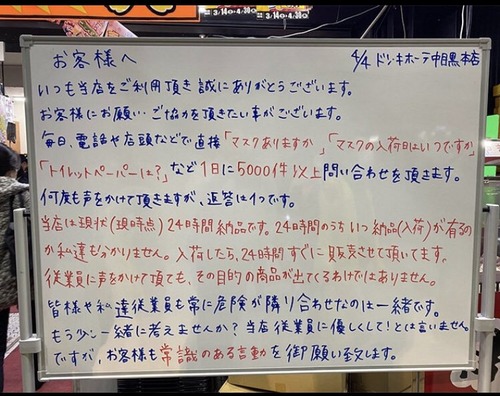 3/14㊏-4/30㊍
3/14㊏-4/30㊍
お客様へ
4/4 ドン・キホーテ中目黒本店
いつも当店をご利用頂き誠にありがとうございます。
お客様にお願い・ご協力を頂きたい事がございます。
毎日、電話や店頭などで直接「マスクありますか」「マスクの入荷日はいつですか」
「トイレットペーパーは?」など1日に5000件以上問い合わせを頂きます。
何度も声をかけて頂きますが、返答は1つです。
当店は現状(現時点)24時間納品です。24時間のうちいつ納品(入荷)が有るの
か私達も分かりません。入荷したら、24時間すぐに販売させて頂いてます。
従業員に声をかけて頂ても、その目的の商品が出てくるわけではありません。
皆様や私達従業員も常に危険が隣り合わせなのは一緒です。
もう少し一緒に考えませんか?当店従業員に優しくして!とは言いません
ですが、お客様も常識のある言動を御願い致します。